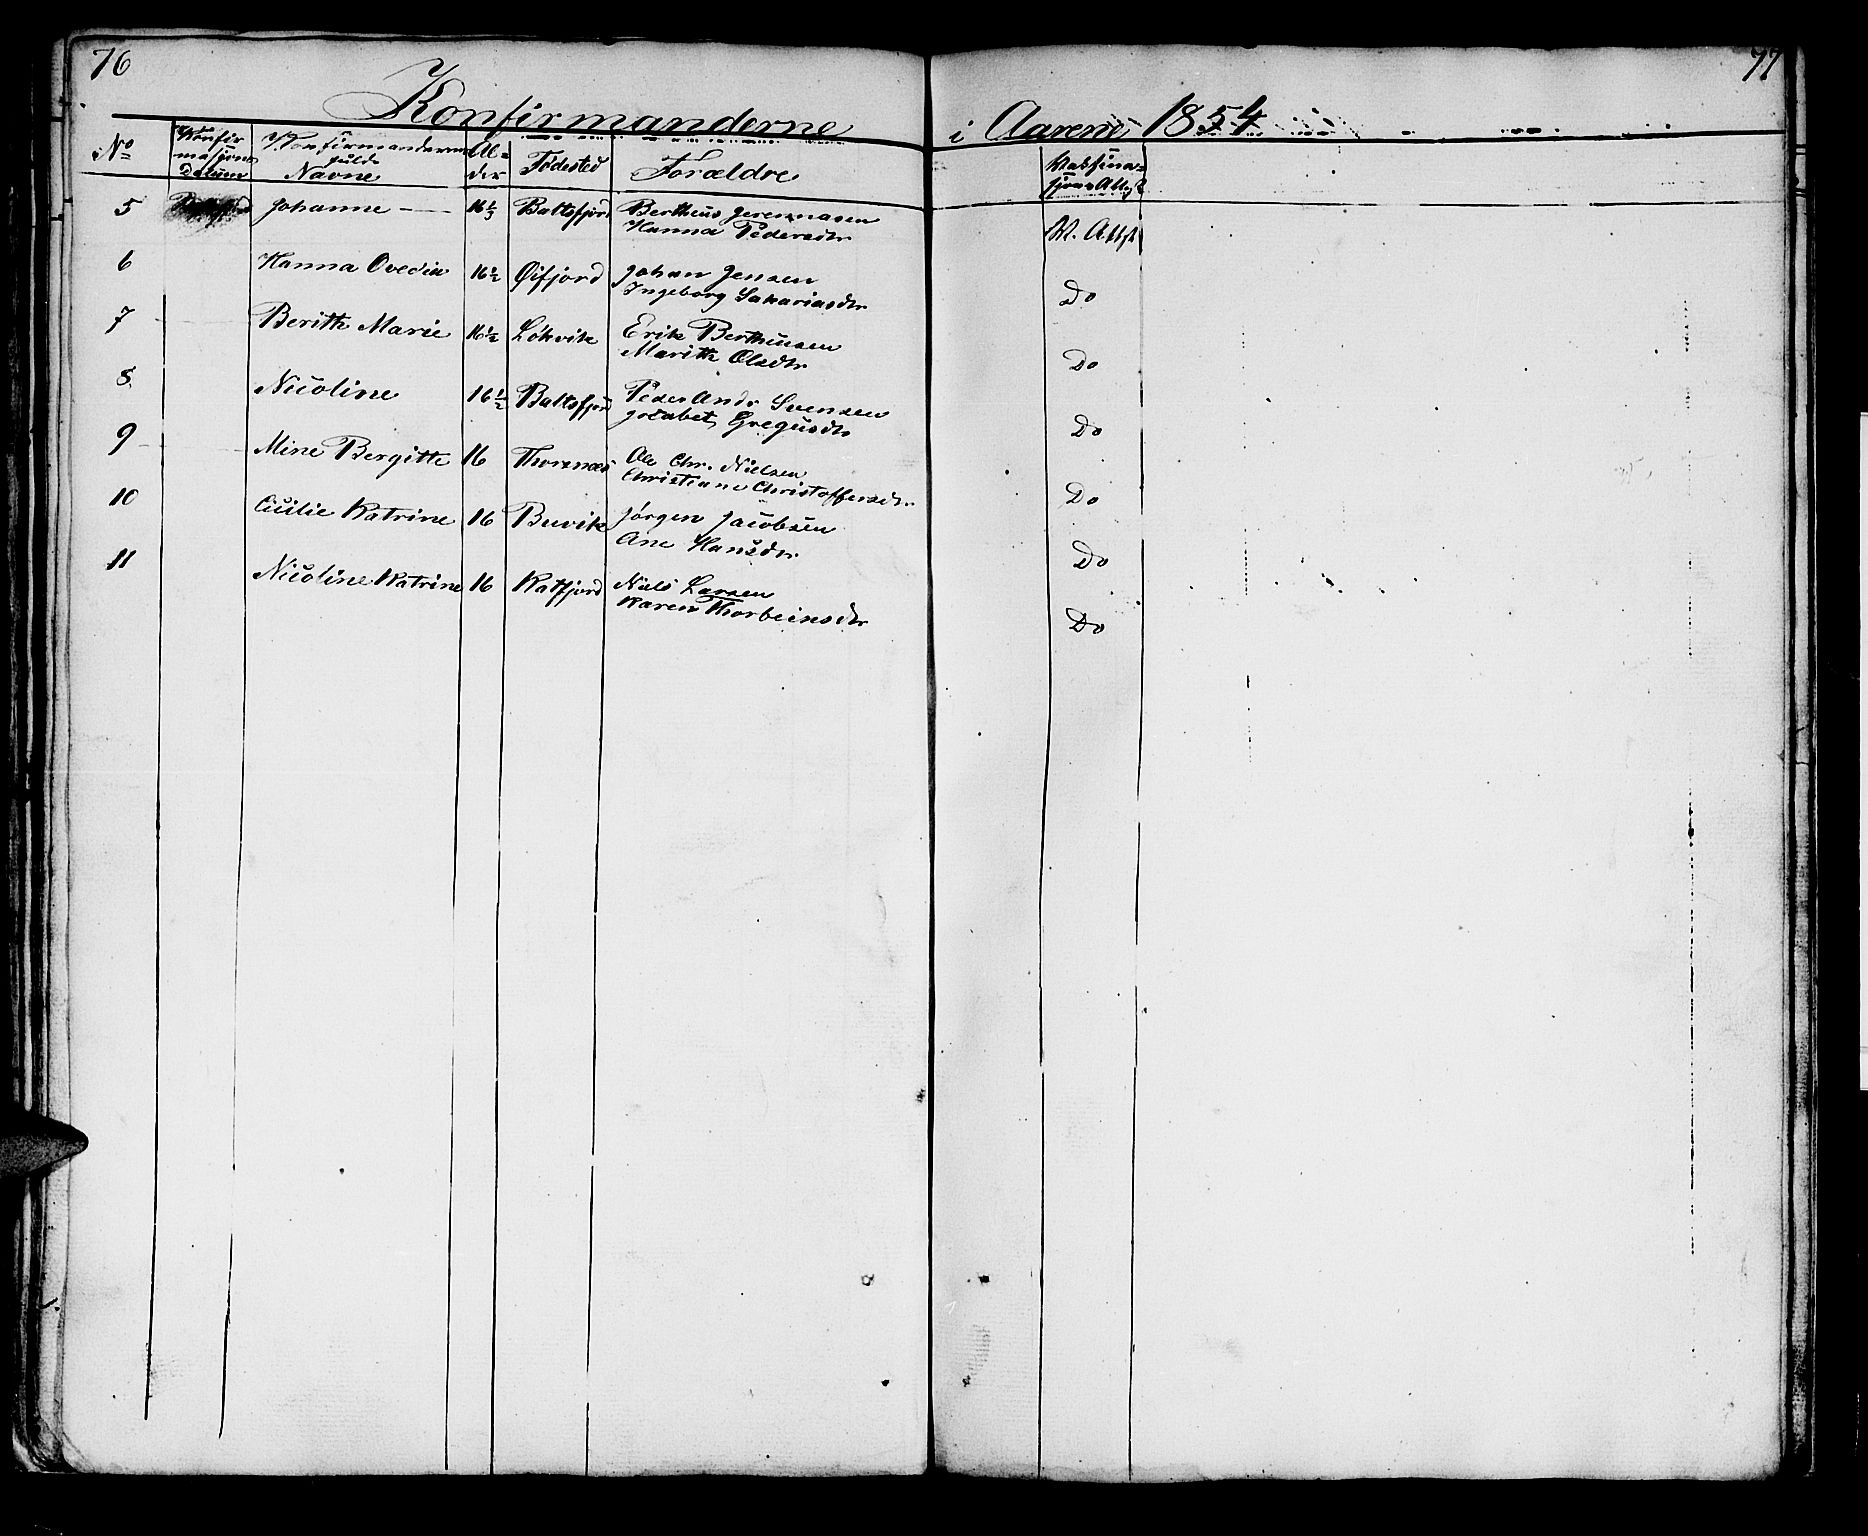 76
77
Konfirmanderne i Aarene 1854
No
Konfir
masjons
Datum
Konfirmandernes
fulde
Navne
Al-
der
Fødested
Forældre
Vaksina-
sjons Attest
5 Johanne — 16 1/3 Baltsfjord Bertheus Jeremiasen
Hanna Pedersdtr
V. Attst
6 Hanna Ovedia 16 1/2 Øifjord Johan Jensen
Ingeborg Sakariasdtr
Do
7 Berith Marie 16 1/2 Løkvik Erik Bertheusen
Marith Olsdtr
Do
8 Nicoline 16 1/2 Baltsfjord Peder Andr Svensen
Gregusdtr
Do
9 Mine Bergitte 16 Thorsnæs Ole Chr. Nielsen
Christiane Christoffersdtr
Do
10 Cicilie Katrine 16 Buvik Jørgen Jacobsen
Ane Hansdtr
Do
11 Nicoline Katrine 16 Katfjord Niels Larsen
Karen Thorbeinsdtr
Do